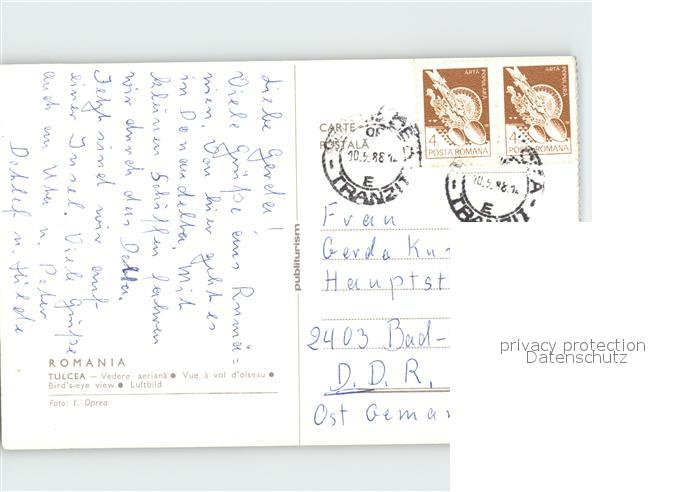 Liebe Gerda!
Viele Grüße aus Rumä=
nien. Von hier geht es
in Donaudelta. Mit
kleinen Schiffen fahren
wir durch das Delta.
Jetzt sind wir auf
einer Insel. Viele Grüße
auch an Uta u. Peter
Detlef u. Hilde
ROMANIA
TULCEA — Vedere aeriană ● Vue à vol d'oiseau ●
Bird's-eye view ● Luftbild
Foto: I. Oprea
publiturism
CARTE
POSTALĂ
ARTA POPULARĂ
4
POSTA ROMANA
ARTA POPULARĂ
4
POSTA ROMANA
10.5.88.12
E
TRANZIT
10.5.88.12
E
TRANZIT
Frau
Gerda
Hauptst
2403 Bad-
D.D.R.
Ost
privacy protection
Datenschutz